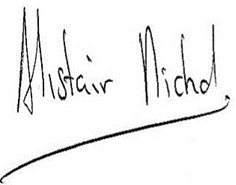 Alistair Nichol